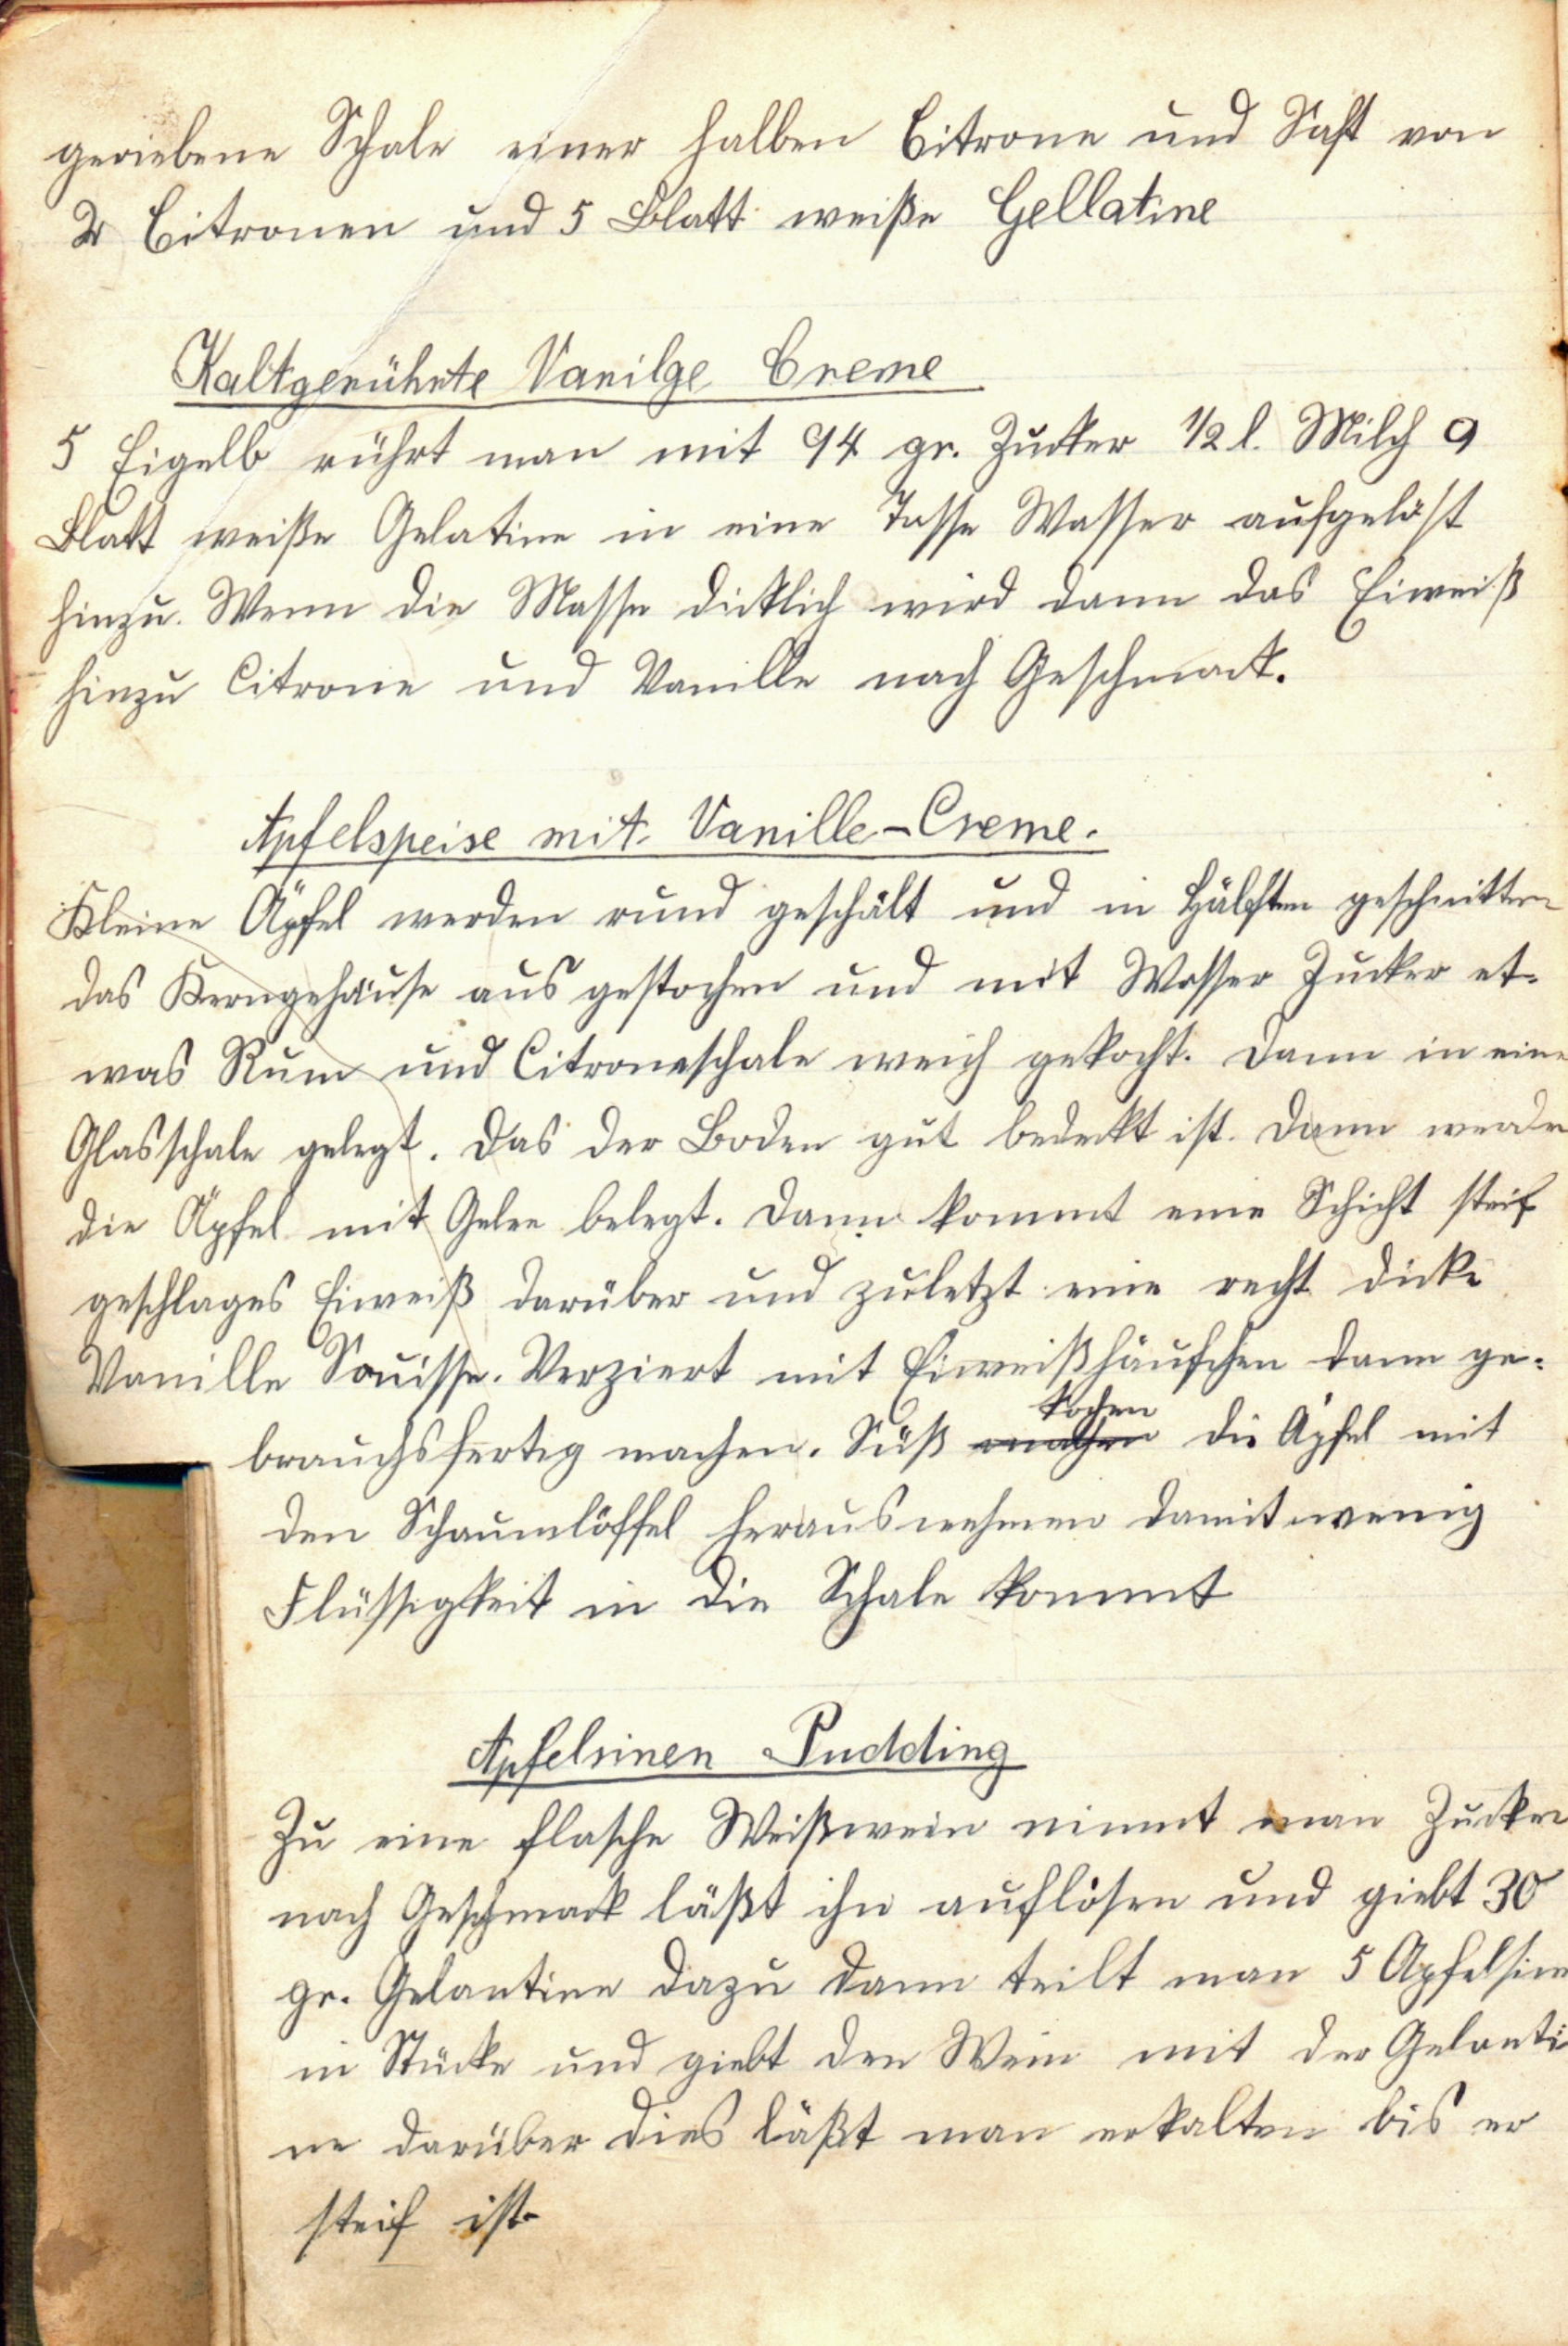 geriebene Schale einer halben Citrone und Saft von
2 Citronen und 5 Blatt weiße Gellatine
Kaltgerührte Vanilge Creme
5 Eigelb rührt man mit 94 gr. Zucker 1/2 l. Milch 9
Blatt weiße Gelatine in eine Tasse Wasser aufgelöst
hinzu. Wenn die Masse dicklich wird dann das Eiweiß
hinzu Citrone und Vanille nach Geschmack.
Apfelspeise mit Vanille-Creme.
Kleine Äpfel werden rund geschält und in Hälften geschnitten
das Kerngehäuse aus gestochen und mit Wasser Zucker et-
was Rum und Citroneschale weich gekocht. Dann in eine
Glasschale gelegt. Das der Boden gut bedeckt ist. Dann werden
die Äpfel mit Gelee belegt. Dann kommt eine Schicht steif
geschlages Eiweiß darüber und zuletzt eine recht dicke
Vanille Souisse. Verziert mit Eiweißhäufchen dann ge-
kochen
brauchsfertig machen. Süß machen die Äpfel mit
den Schaumlöffel herausnehmen damit wenig
Flüssigkeit in die Schale kommt
Apfelsinen Pudding
Zu eine Flasche Weißwein nimmt man Zucker
nach Geschmack läßt ihn auflösen und giebt 30
gr. Gelantine dazu dann teilt man 5 Apfelsine
in Stücke und giebt den Wein mit der Gelanti
ne darüber dies läßt man erkalten bis er
steif ist.